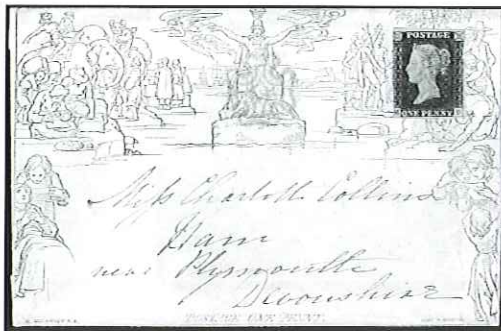 POSTAGE
ONE PENNY
Miss Charlotte Collins
Ham
near Plymouth
Devonshire
POSTAGE ONE PENNY.